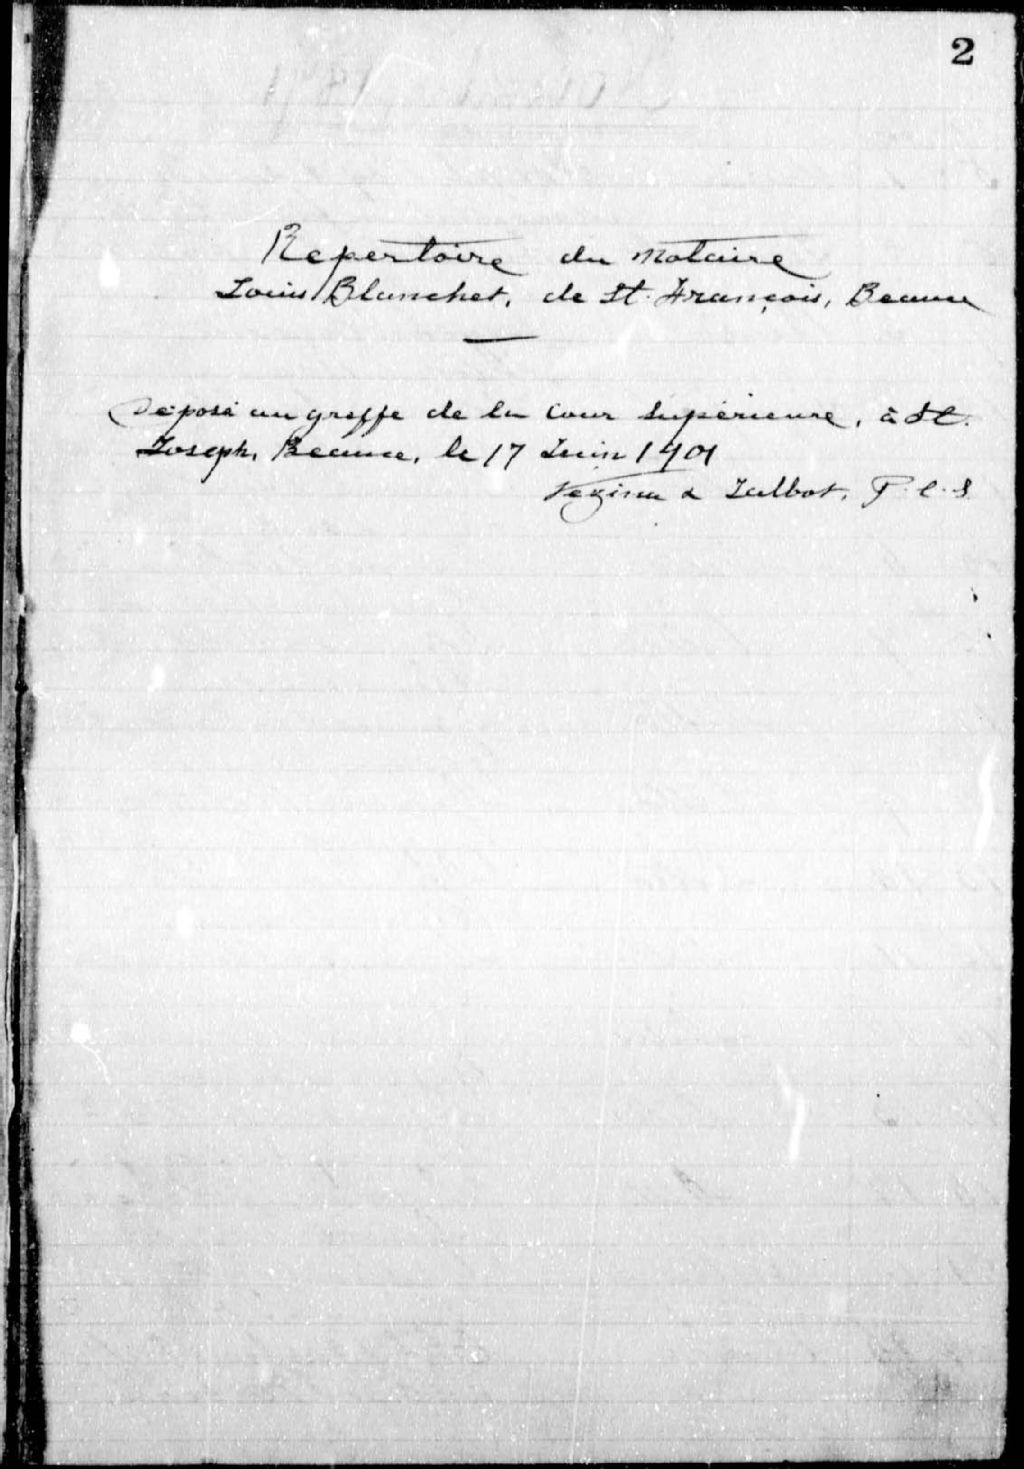 2
Repertoire du Notaire
Louis Blanchet, de St. François, Beauce
Déposé au greffe de la Cour Supérieure, à St.
Joseph, Beauce, le 17 Juin 1901
Vezina & Talbot, P. C. S.